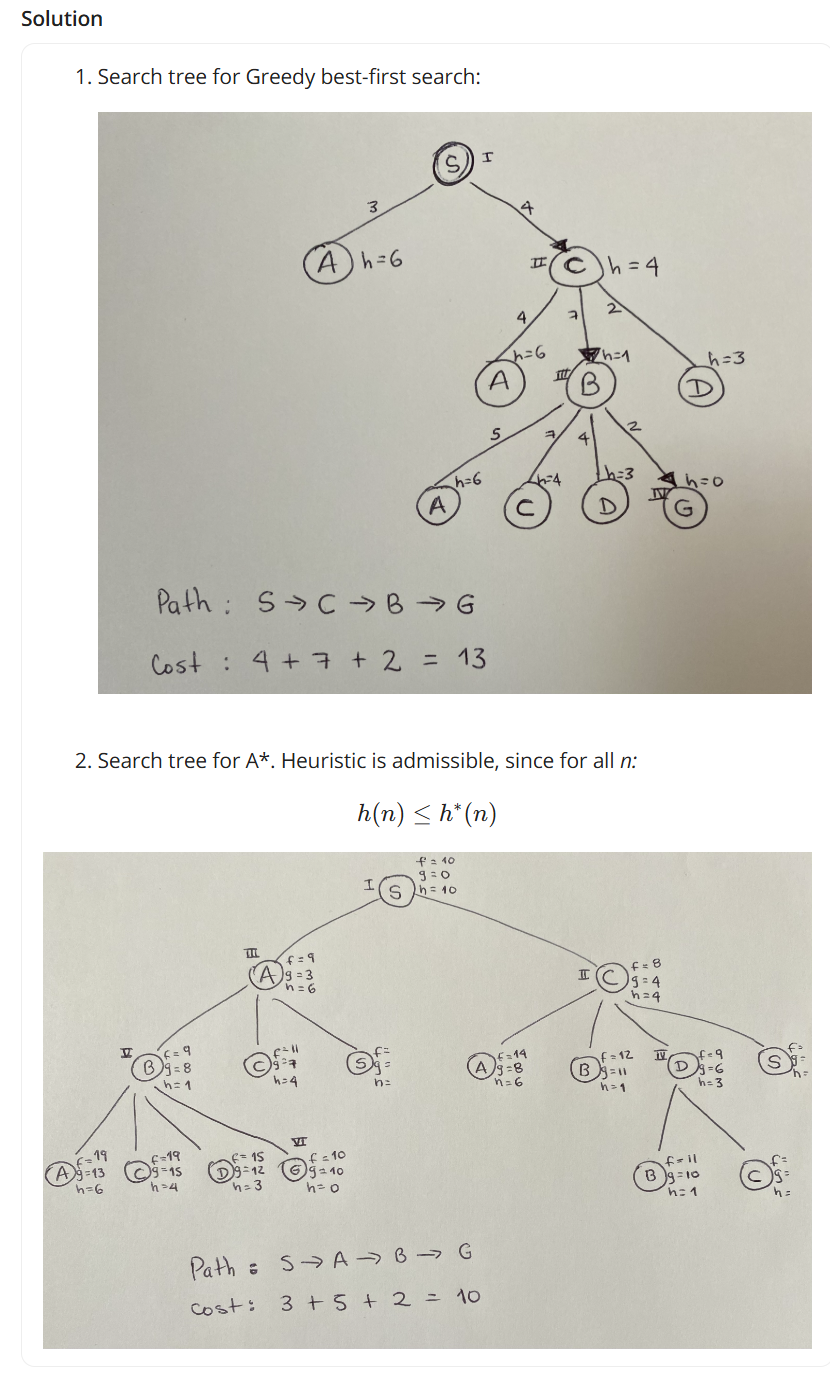 Solution
1. Search tree for Greedy best-first search:
S I
3 4
A h=6 II C h=4
4 7 2
h=6 h=1 h=3
A III B D
5 7 4 2
h=6 h=4 h=3 h=0
A C D IV G
Path : S → C → B → G
Cost : 4 + 7 + 2 = 13
2. Search tree for A*. Heuristic is admissible, since for all n:
h(n) ≤ h*(n)
f=10
g=0
I S h=10
III
A f=9 g=3 h=6
II C f=8 g=4 h=4
V B f=9 g=8 h=1
C f=11 g=7 h=4
S f= g= h=
A f=14 g=8 h=6
B f=12 g=11 h=1
IV D f=9 g=6 h=3
S f= g= h=
A f=19 g=13 h=6
C f=19 g=15 h=4
D f=15 g=12 h=3
VI G f=10 g=10 h=0
B f=11 g=10 h=1
C f= g= h=
Path : S → A → B → G
Cost: 3 + 5 + 2 = 10